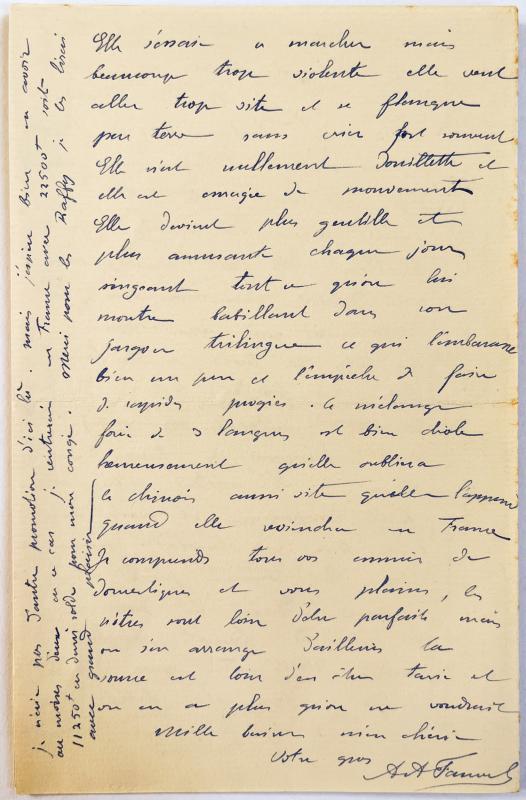 Elle s'essaie a marcher mais
beaucoup trop violente elle veut
aller trop vite et se flanque
par terre sans crier fort souvent
Elle n'est nullement douillette et
elle est enragée de mouvement
Elle devient plus gentille et
plus amusante chaque jour
singeant tout ce qu'on lui
montre babillant dans son
jargon trilingue ce qui l'embarasse
bien un peu et l'empêche de faire
de rapides progrès. Ce mélange
fait de 3 langues est bien drôle
heureusement qu'elle oubliera
le chinois aussi vite qu'elle l'apprend
quand elle reviendra en France
Je comprends tous vos ennuis de
domestiques et vous plains, les
nôtres sont loin d'être parfaits mais
on s'en arrange d'ailleurs la
source est loin d'en être tarie et
on en a plus qu'on ne voudrait
Mille baisers mien chérie
Votre gros
je n'aie pas d'autre promotion d'ici là. mais j'espère bien en avoir
au moins deux en ce cas je rentrerai en France avec 22500 soit
11250 en demi solde pour mon congé. Merci pour les Raffy je les lirai
avec grand plaisir